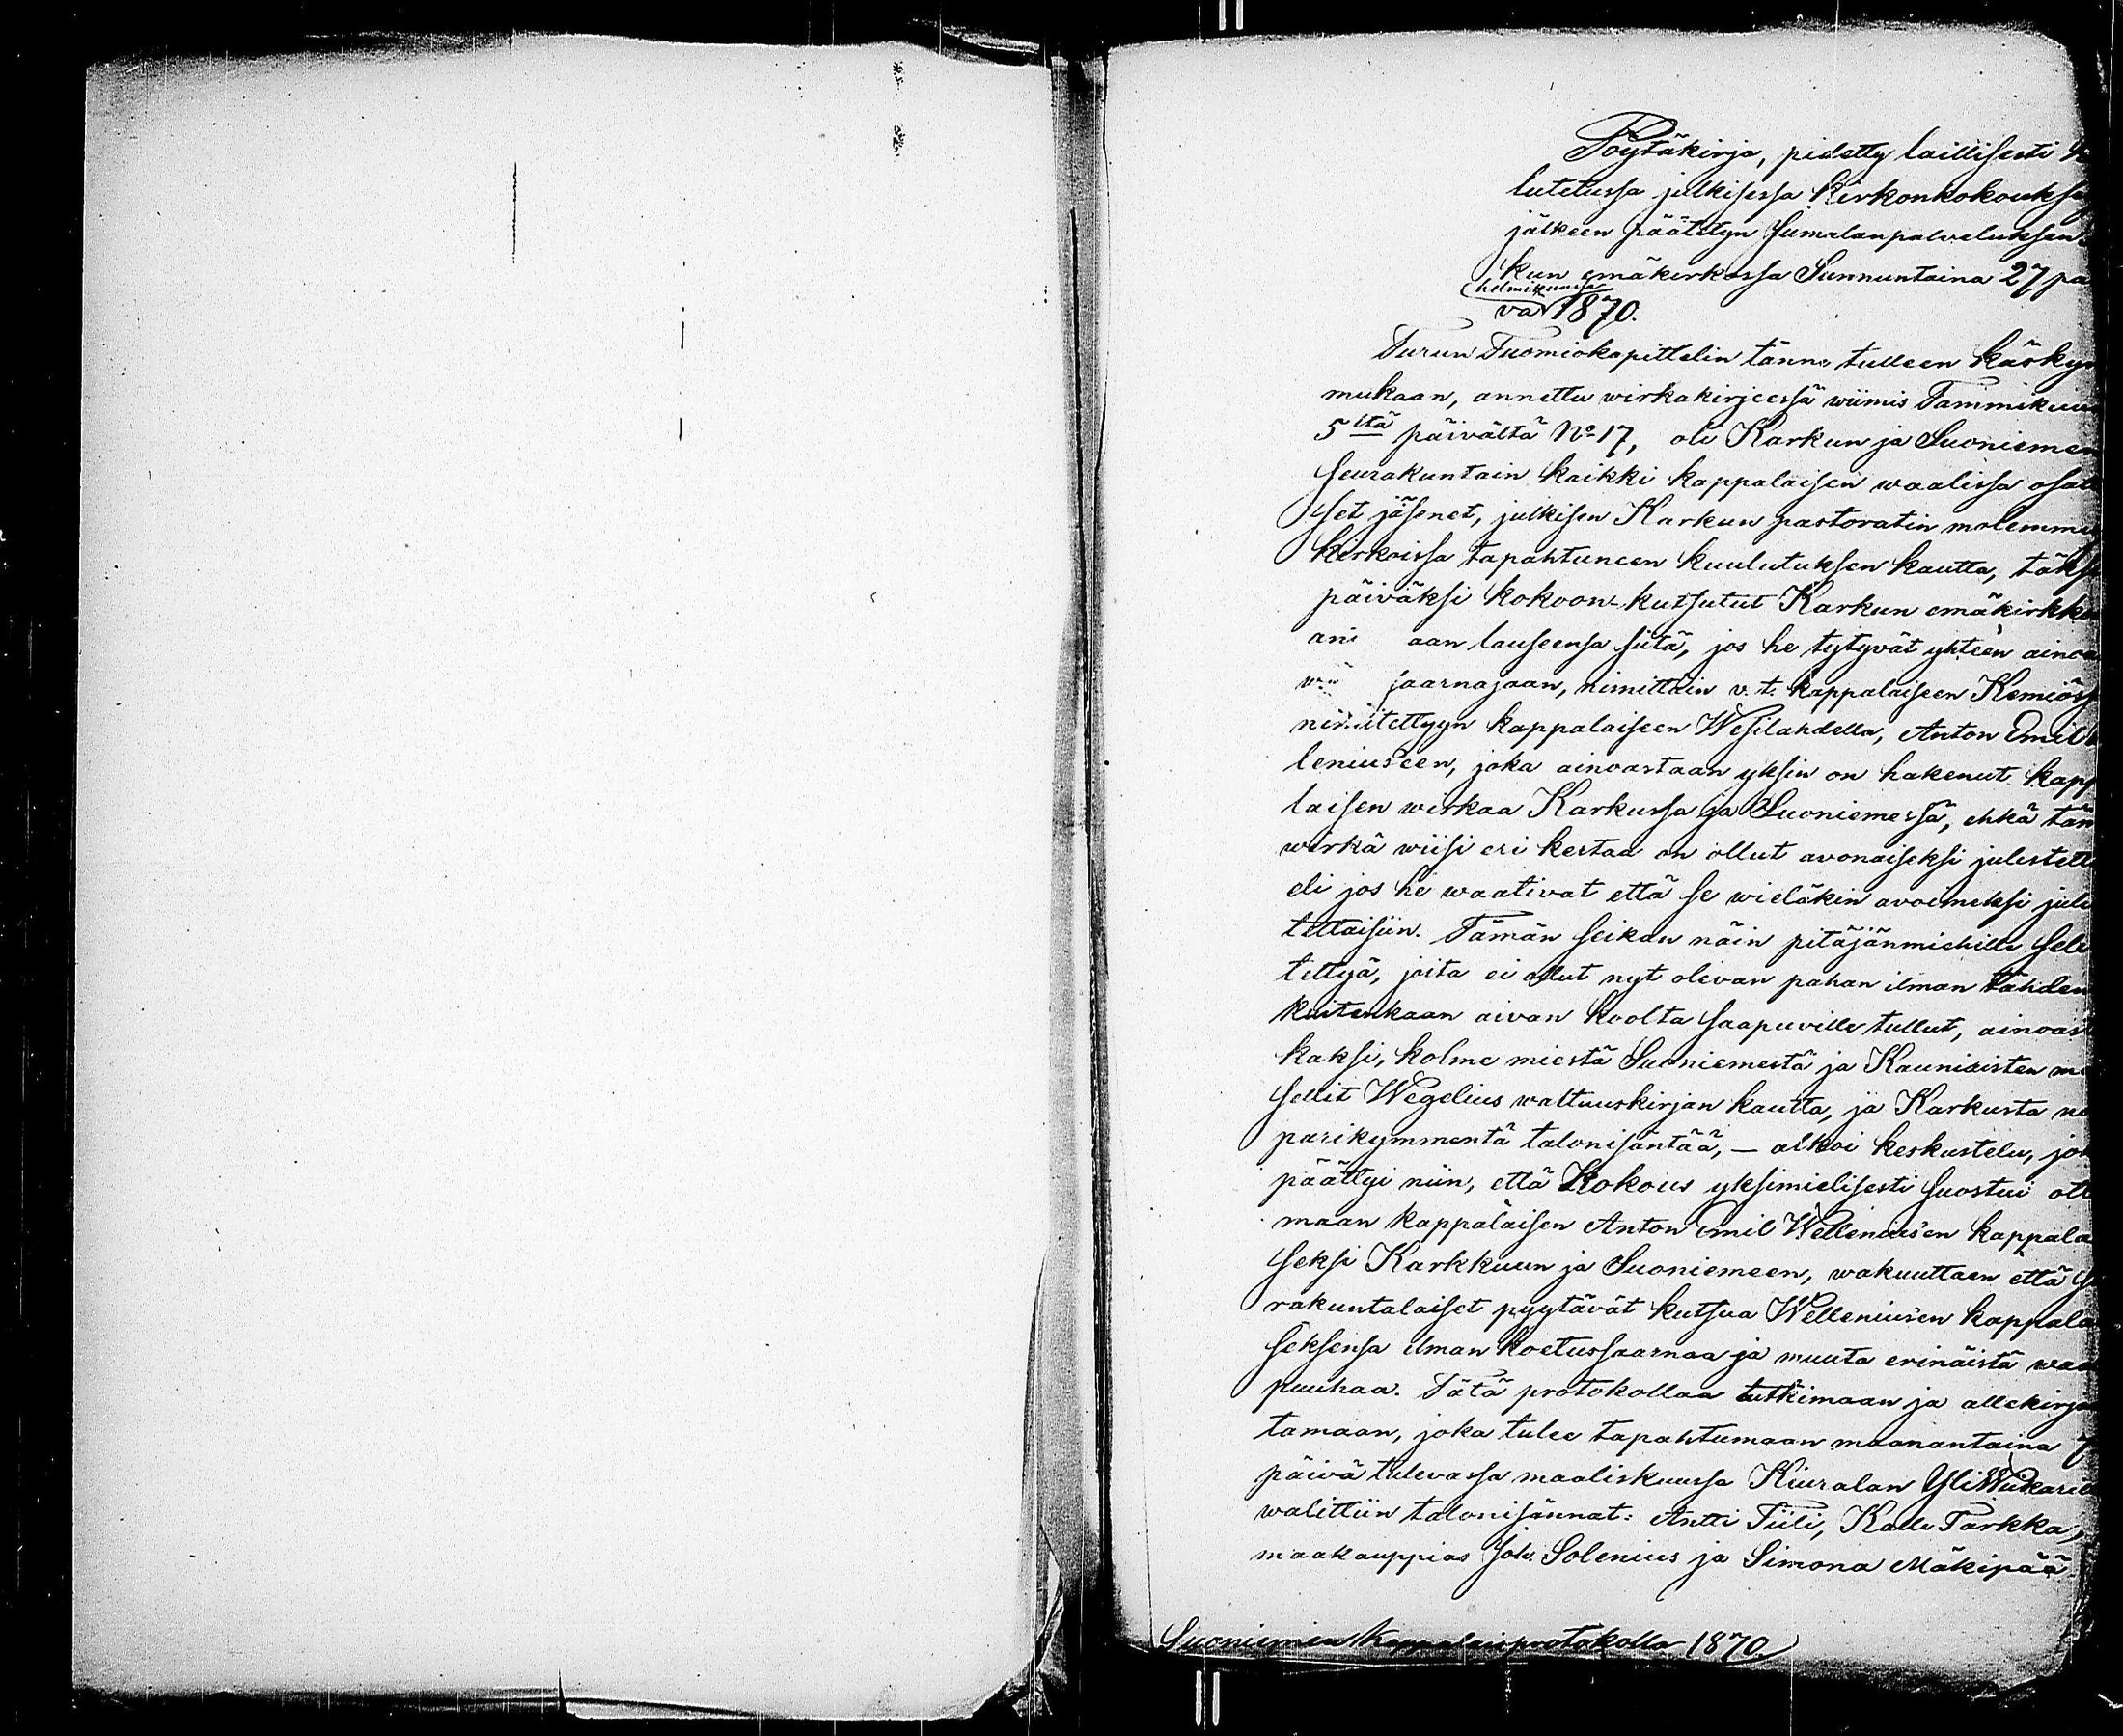 Pöytäkirja, pidetty laillisesti
lutetussa julkisessa Kirkonkokouksa
jälkeen päätetyn Jumalanpalveluksen
kun emäkirkossa Sunnuntaina 27 pä
helmikuussa
vä 1870.
Turun Tuomiokapittelin tänne tulleen käskyn
mukaan, annettu wirkakirjeessä wiimis Tammikuu
5ltä päivältä No 17, oli Karkun ja Suoniemen
seurakuntain kaikki kappalaisen waalissa osal
set jäsenet, julkisen Karkun pastoratin molemmi
kirkoissa tapahtuneen kuulutuksen kautta, täks
päiväksi kokoon-kutsutut Karkun emäkirkko
an aan lauseensa siitä, jos he tytyvät yhteen ainoa
saarnajaan, nimittäin v. t. kappalaiseen Kemiöss
nimitettyyn kappalaiseen Wesilahdella, Anton Emil
leniuseen, joka ainoastaan yksin on hakenut kapp
laisen wirkaa Karkussa ja Suoniemessä, ehkä täm
wirka wiisi eri kertaa on ollut avonaiseksi julistett
eli jos he waativat että se wieläkin avoimeksi juli
tettaisiin. Tämän seikan näin pitäjänmiehille sele
tettyä, joita ei ollut nyt olevan pahan ilman tähden
kuitenkaan aivan koolta saapuville tullut, ainoast
kaksi, kolme miestä Suoniemestä ja Kauniaisten m
sellit Wegelius waltuuskirjan kautta, ja Karkusta no
parikymmentä talonisäntää, — alkoi keskustelu, jok
päättyi niin, että Kokous yksimielisesti suostui ott
maan kappalaisen Anton Emil Welleniusen kappala
seksi Karkkuun ja Suoniemeen, wakuuttaen että se
rakuntalaiset pyytävät kutsua Welleniusen kappala
seksensa ilman koetussaarnaa ja muuta erinäistä waa
puuhaa. Tätä protokollaa tutkimaan ja allekirjoi
tamaan, joka tulee tapahtumaan maanantaina 7
päivä tulevassa maaliskuussa Kiuralan YliWikaril
walittiin talonisännät: Antti Tiili, Kalle Tarkka,
maakauppias Joh. Solenius ja Simona Mäkipää.
Suoniemen kappalaisprotokolla 1870.